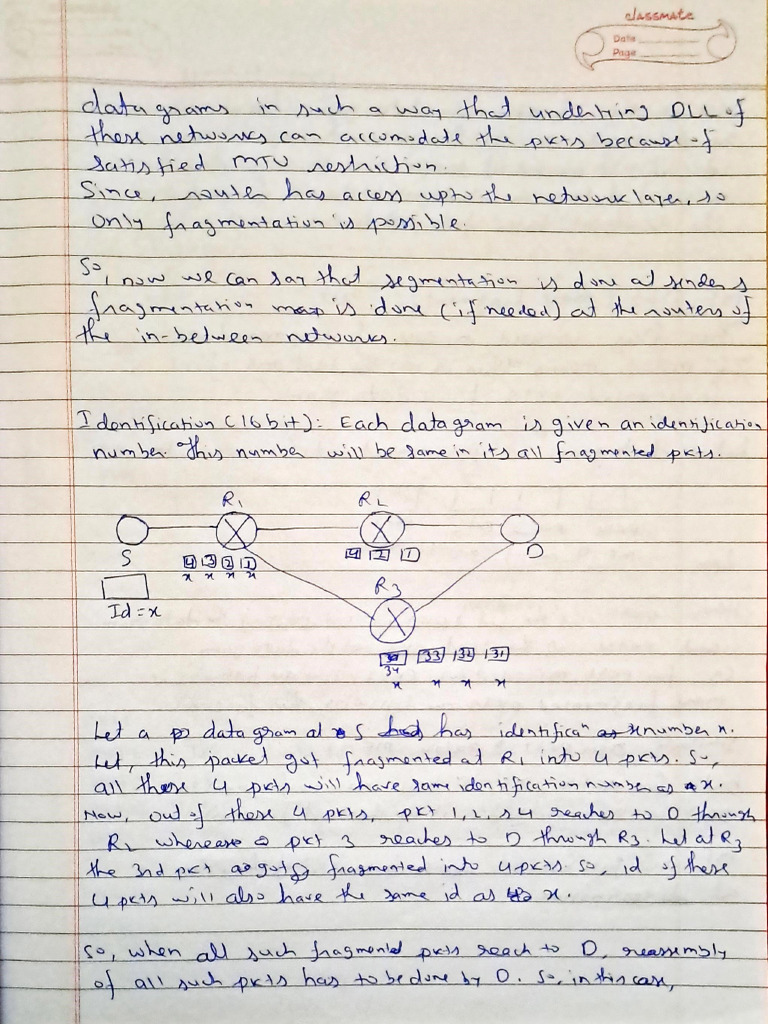 classmate
Date
Page
datagrams in such a way that underlying DLL of
these networks can accomodate the pkts because of
satisfied MTU restriction.
Since, router has access upto the network layer, so
only fragmentation is possible.
So, now we can say that segmentation is done at sender &
fragmentation is done (if needed) at the routers of
the in-between networks.
Identification (16 bit): Each datagram is given an identification
number. This number will be same in its all fragmented pkts.
R1 R2
S D
4 3 2 1 4 2 1
x x x x
R3
Id = x
34 33 32 31
x x x x
Let a datagram at S has identificaⁿ number x.
Let, this packet got fragmented at R1 into 4 pkts. So,
all these 4 pkts will have same identification number as x.
Now, out of these 4 pkts, pkt 1, 2, & 4 reaches to D through
R2 whereas pkt 3 reaches to D through R3. Let at R3
the 3rd pkt got fragmented into 4 pkts. So, id of these
4 pkts will also have the same id as x.
So, when all such fragmented pkts reach to D, reassembly
of all such pkts has to be done by D. So, in this case,